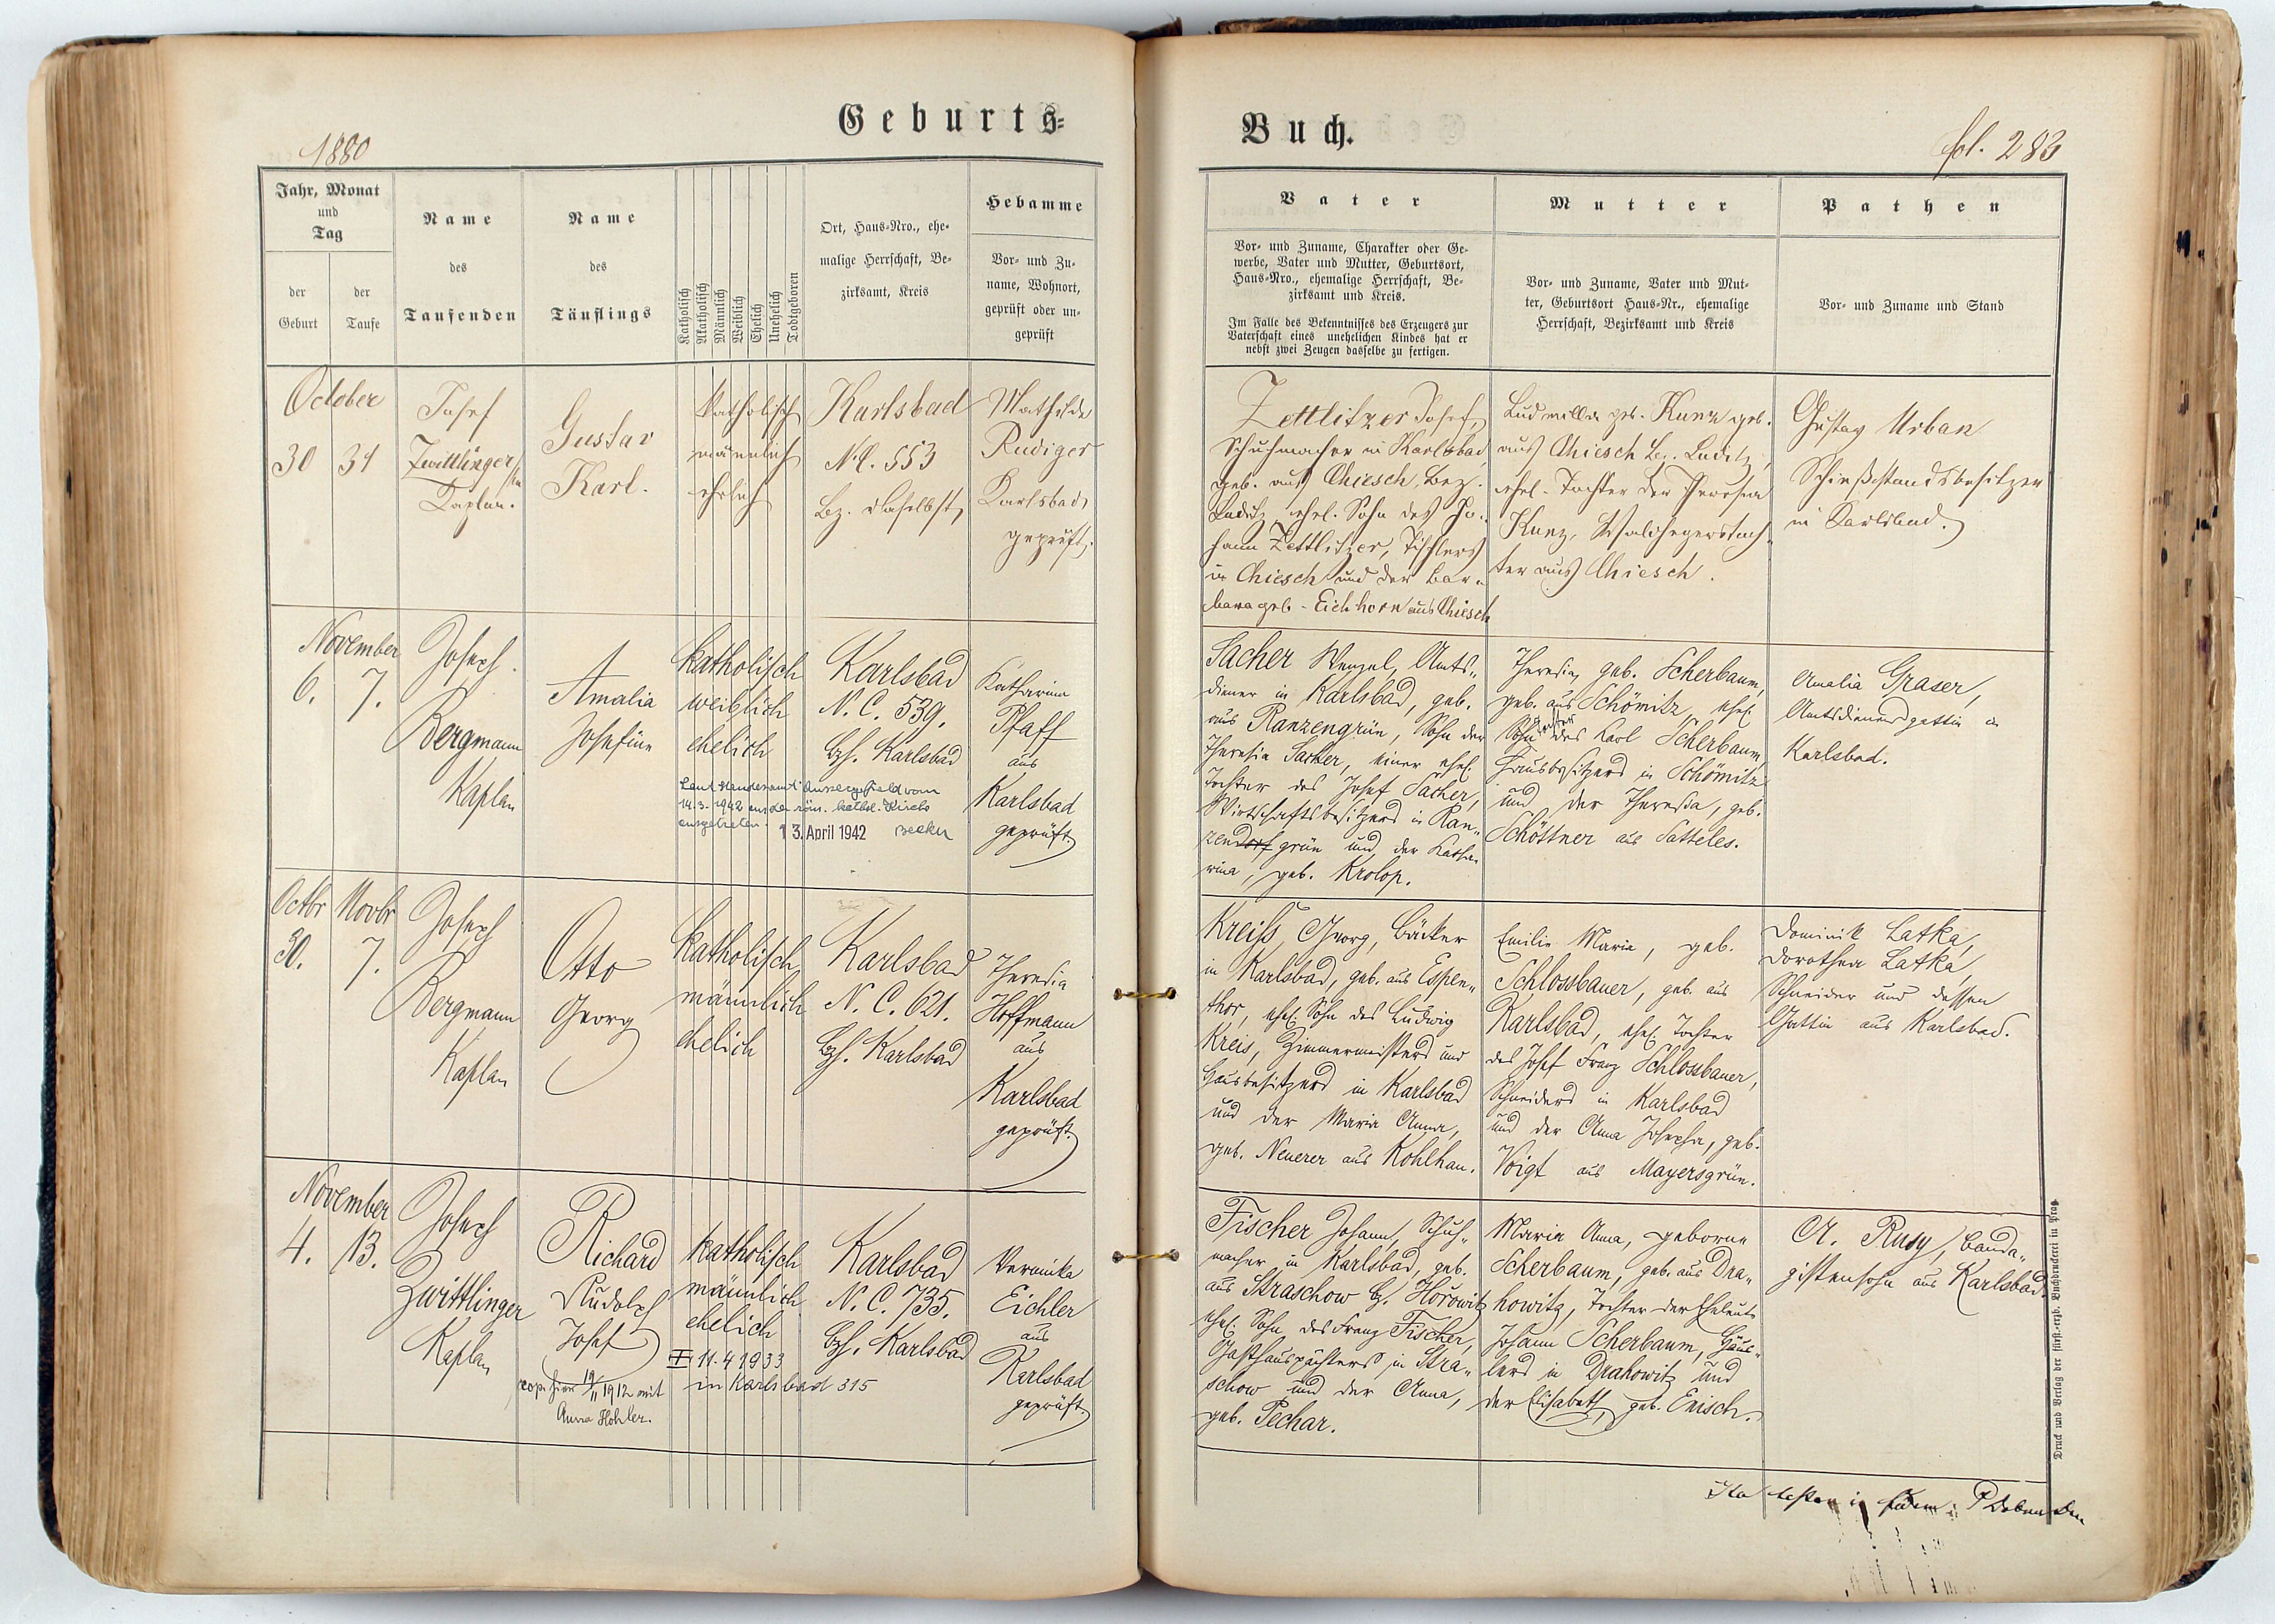 1880
Geburts-
Jahr, Monat
und
Tag
der
Geburt
der
Taufe
Name
des
Taufenden
Name
des
Täuflings
Katholisch
Akatholisch
Männlich
Weiblich
Ehelich
Unehelich
Todtgeboren
Ort, Haus-Nro., ehe-
malige Herrschaft, Be-
zirksamt, Kreis
Hebamme
Vor- und Zu-
name, Wohnort,
geprüft oder un-
geprüft
October
30 31
Josef
Zwittlinger
Kaplan.
Gustav
Karl.
katholisch
männlich
ehelich
Karlsbad
N.C. 553
Bez. daselbst
Mathilde
Rudiger
Karlsbad,
geprüft.
November
6. 7.
Joseph
Bergmann
Kaplan
Amalia
Josefine
katholisch
weiblich
ehelich
Karlsbad
N. C. 539.
Bzh. Karlsbad
Katharina
Pfaff
aus
Karlsbad
geprüft.
14.3.1942 aus der röm. kathol. Kirche
ausgetreten.
13. April 1942
Octbr Novbr
30. 7.
Joseph
Bergmann
Kaplan
Otto
Georg
katholisch
männlich
ehelich
Karlsbad
N. C. 621.
Bzh. Karlsbad
Theresia
Hoffmann
aus
Karlsbad
geprüft.
November
4. 13.
Joseph
Zwittlinger
Kaplan
Richard
Rudolph
Josef
19/11 1912 mit
Anna Hohler.
katholisch
männlich
ehelich
11.4 1933
in Karlsbad 315
Karlsbad
N. C. 735.
Bzh. Karlsbad
Veronika
Eichler
aus
Karlsbad
geprüft.
Buch.
fol. 283
Vater
Vor- und Zuname, Charakter oder Ge-
werbe, Vater und Mutter, Geburtsort,
Haus-Nro., ehemalige Herrschaft, Be-
zirksamt und Kreis.
Im Falle des Bekenntnisses des Erzeugers zur
Vaterschaft eines unehelichen Kindes hat er
nebst zwei Zeugen dasselbe zu fertigen.
Mutter
Vor- und Zuname, Vater und Mut-
ter, Geburtsort Haus-Nr., ehemalige
Herrschaft, Bezirksamt und Kreis
Pathen
Vor- und Zuname und Stand
Zettlitzer Josef,
Schuhmacher in Karlsbad,
geb. aus Chiesch, Bez.
Luditz, ehel. Sohn des Jo-
hann Zettlitzer, Tischlers
in Chiesch und der Bar-
bara geb. Eichhorn aus Chiesch
Ludmilla geb. Kunz geb.
aus Chiesch Bez. Luditz,
ehel. Tochter der Theresia
Kunz, Waldhegerstoch-
ter aus Chiesch.
Gustav Urban
Schießstandsbesitzer
in Karlsbad.
Sacher Wenzel, Amts-
diener in Karlsbad, geb.
aus Ranzengrün, Sohn der
Theresia Sacher, einer ehel.
Tochter des Josef Sacher,
Wirtschaftsbesitzers in Ran-
zendorf grün und der Katha-
rina, geb. Krolop.
Theresia, geb. Scherbaum,
geb. aus Schömitz, ehel.
Sohn Tochter des Karl Scherbaum,
Hausbesitzers in Schömitz
und der Theresia, geb.
Schöttner aus Satteles.
Amalia Graser,
Amtsdienersgattin in
Karlsbad.
Kreiss, Georg, Bäcker
in Karlsbad, geb. aus Espen-
thor, ehel. Sohn des Ludwig
Kreis, Zimmermeisters und
Hausbesitzers in Karlsbad
und der Maria Anna,
geb. Neuerer aus Kohlhau.
Emilie Maria, geb.
Schlossbauer, geb. aus
Karlsbad, ehel. Tochter
des Josef Franz Schlossbauer,
Schneiders in Karlsbad
und der Anna Josepha, geb.
Voigt aus Mayersgrün.
Dominik Latka,
Dorothea Latka,
Schneider und dessen
Gattin aus Karlsbad.
Fischer Johann, Schuh-
macher in Karlsbad, geb.
aus Straschow Bz. Horowitz
ehel. Sohn des Franz Fischer,
Gasthauspächters in Stra-
schow und der Anna,
geb. Pechar.
Maria Anna, geborne
Scherbaum, geb. aus Dra-
howitz, Tochter der Eheleute
Johann Scherbaum, Häus-
lers in Drahowitz und
der Elisabeth, geb. Enisch.
A. Rusy, Banda-
gistensohn aus Karlsbad.
Druck und Verlag der fürst.-erzb. Buchdruckerei in Prag.